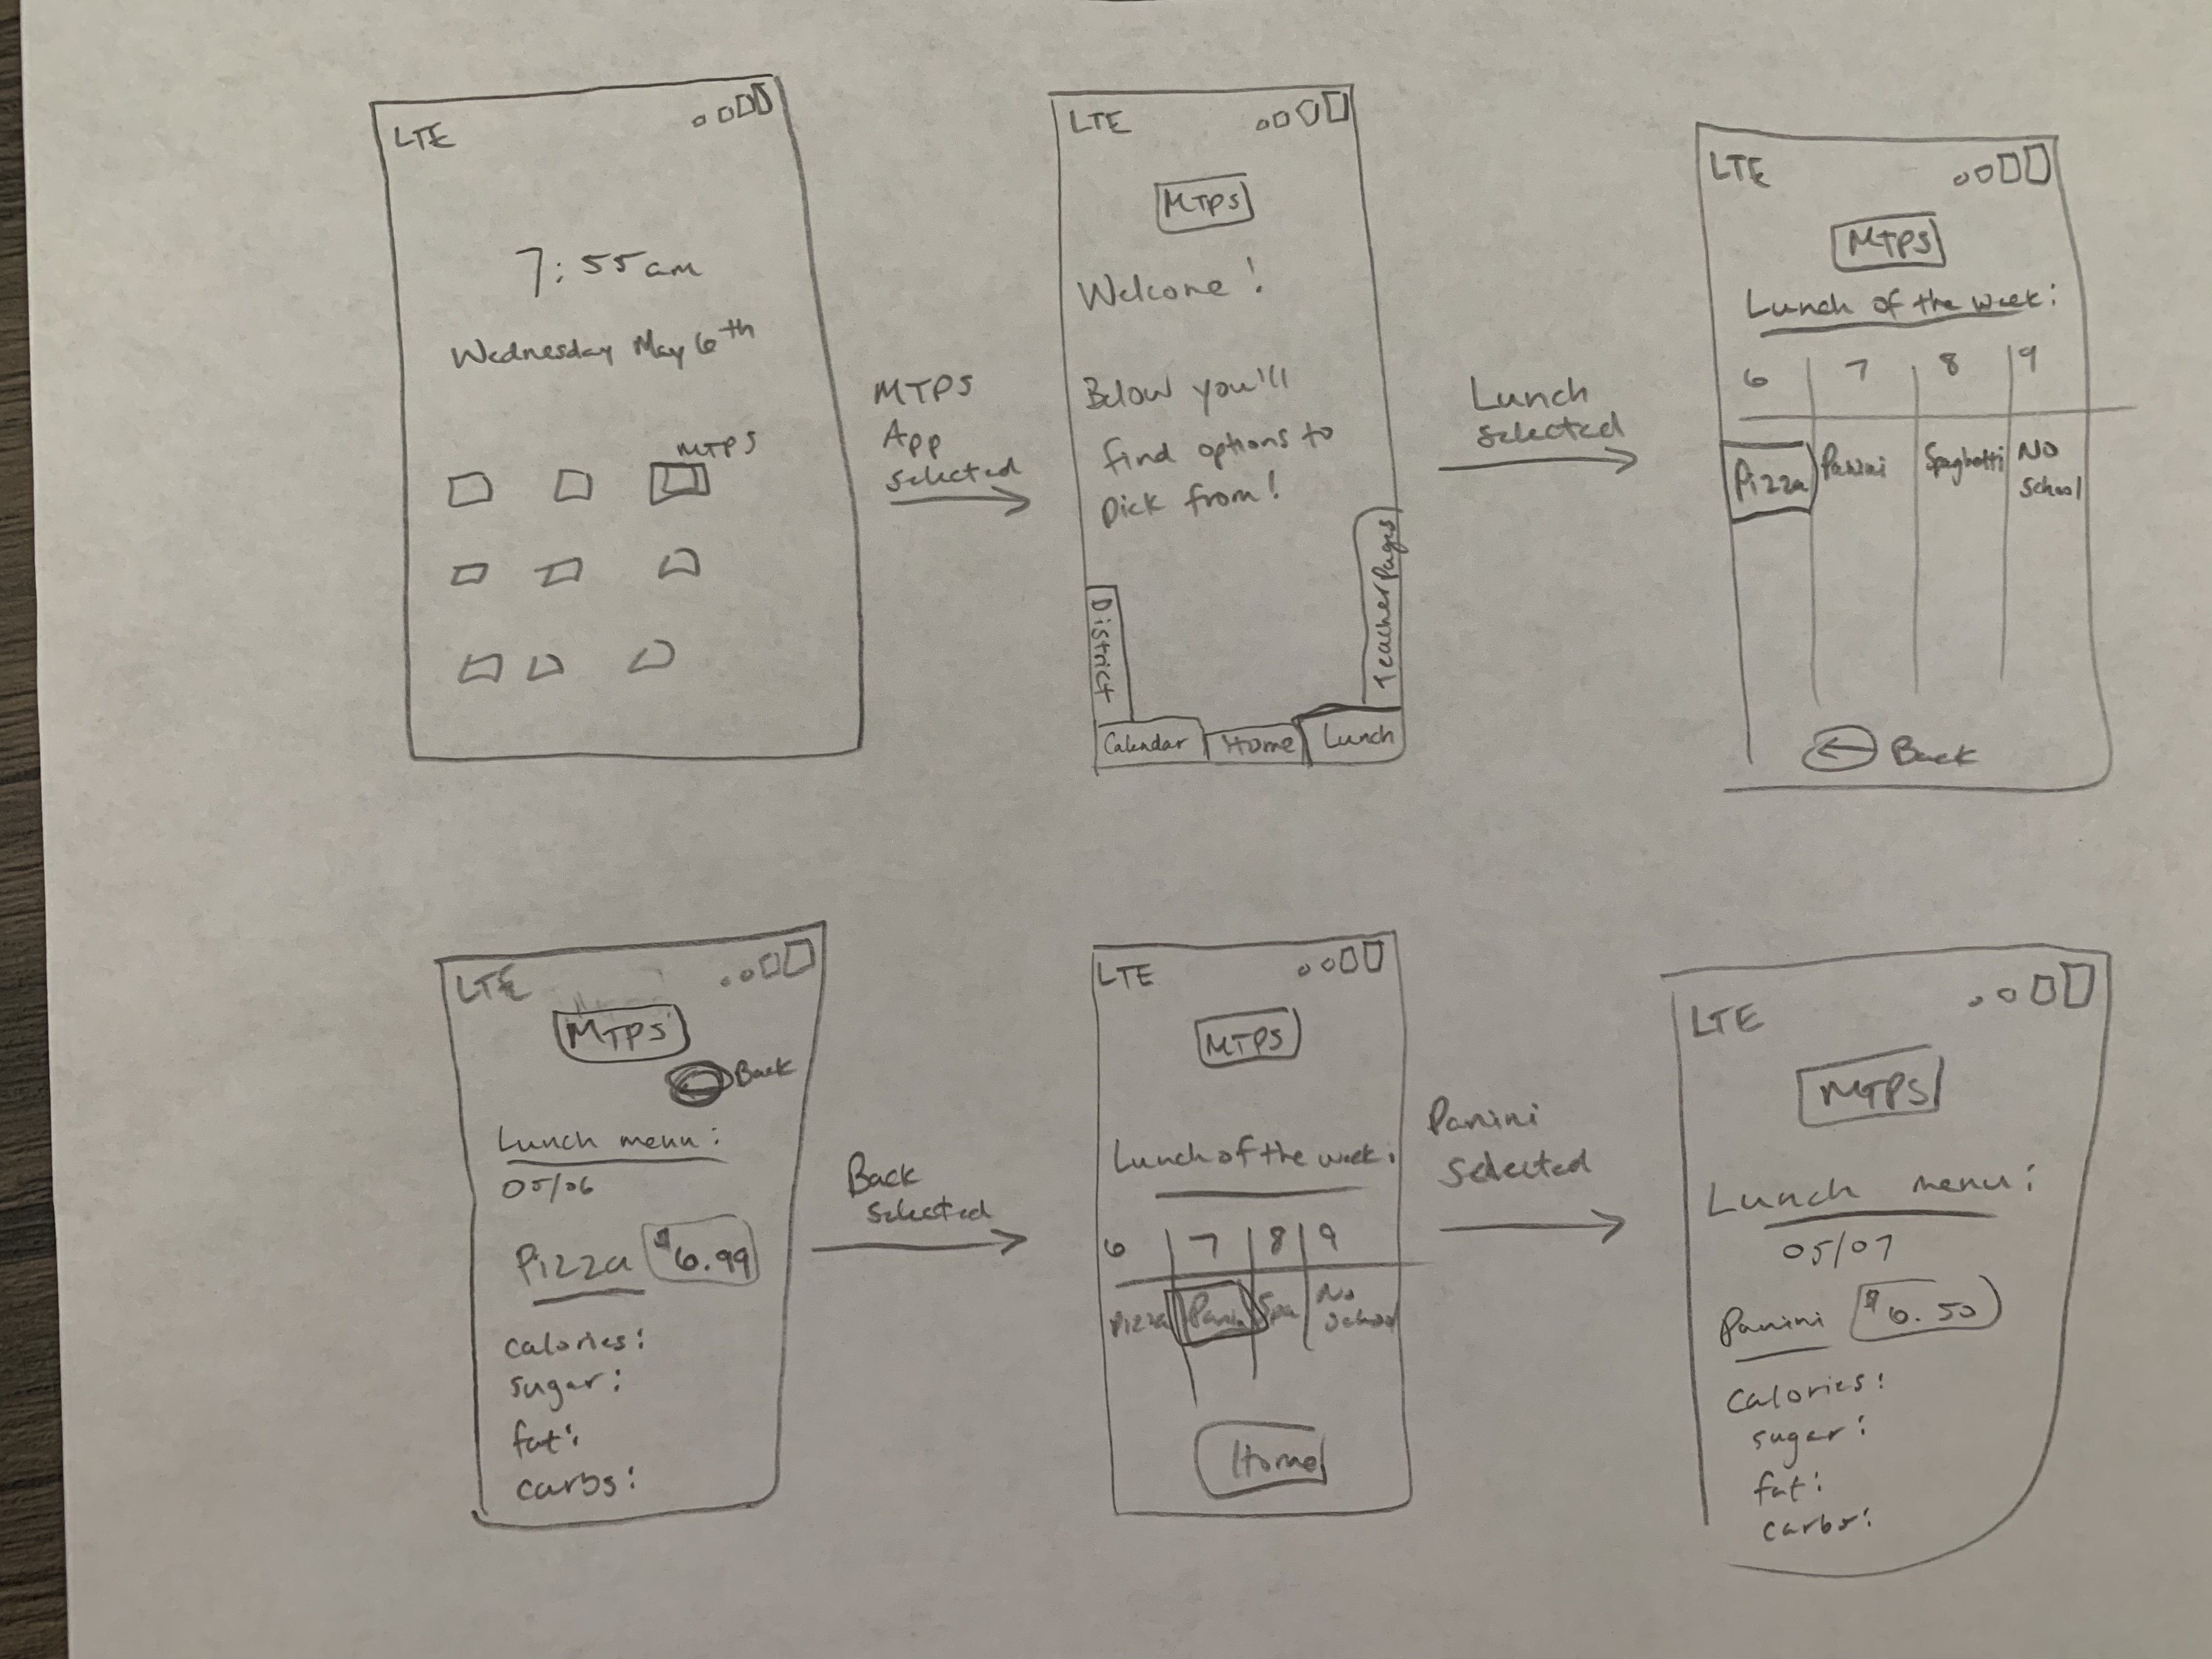 LTE
7:55am
Wednesday May 6th
MTPS
MTPS
App
selected
LTE
MTPS
Welcome!
Below you'll
find options to
pick from!
District
Teacher Pages
Calendar Home Lunch
Lunch
selected
LTE
MTPS
Lunch of the week:
6 7 8 9
Pizza Panini Spaghetti No
School
Back
LTE
MTPS
Back
Lunch menu:
05/06
Pizza $6.99
calories:
sugar:
fat:
carbs:
Back
selected
LTE
MTPS
Lunch of the week:
6 7 8 9
Pizza Panini Spa No
School
Home
Panini
selected
LTE
MTPS
Lunch menu:
05/07
Panini $6.50
calories:
sugar:
fat:
carbs: